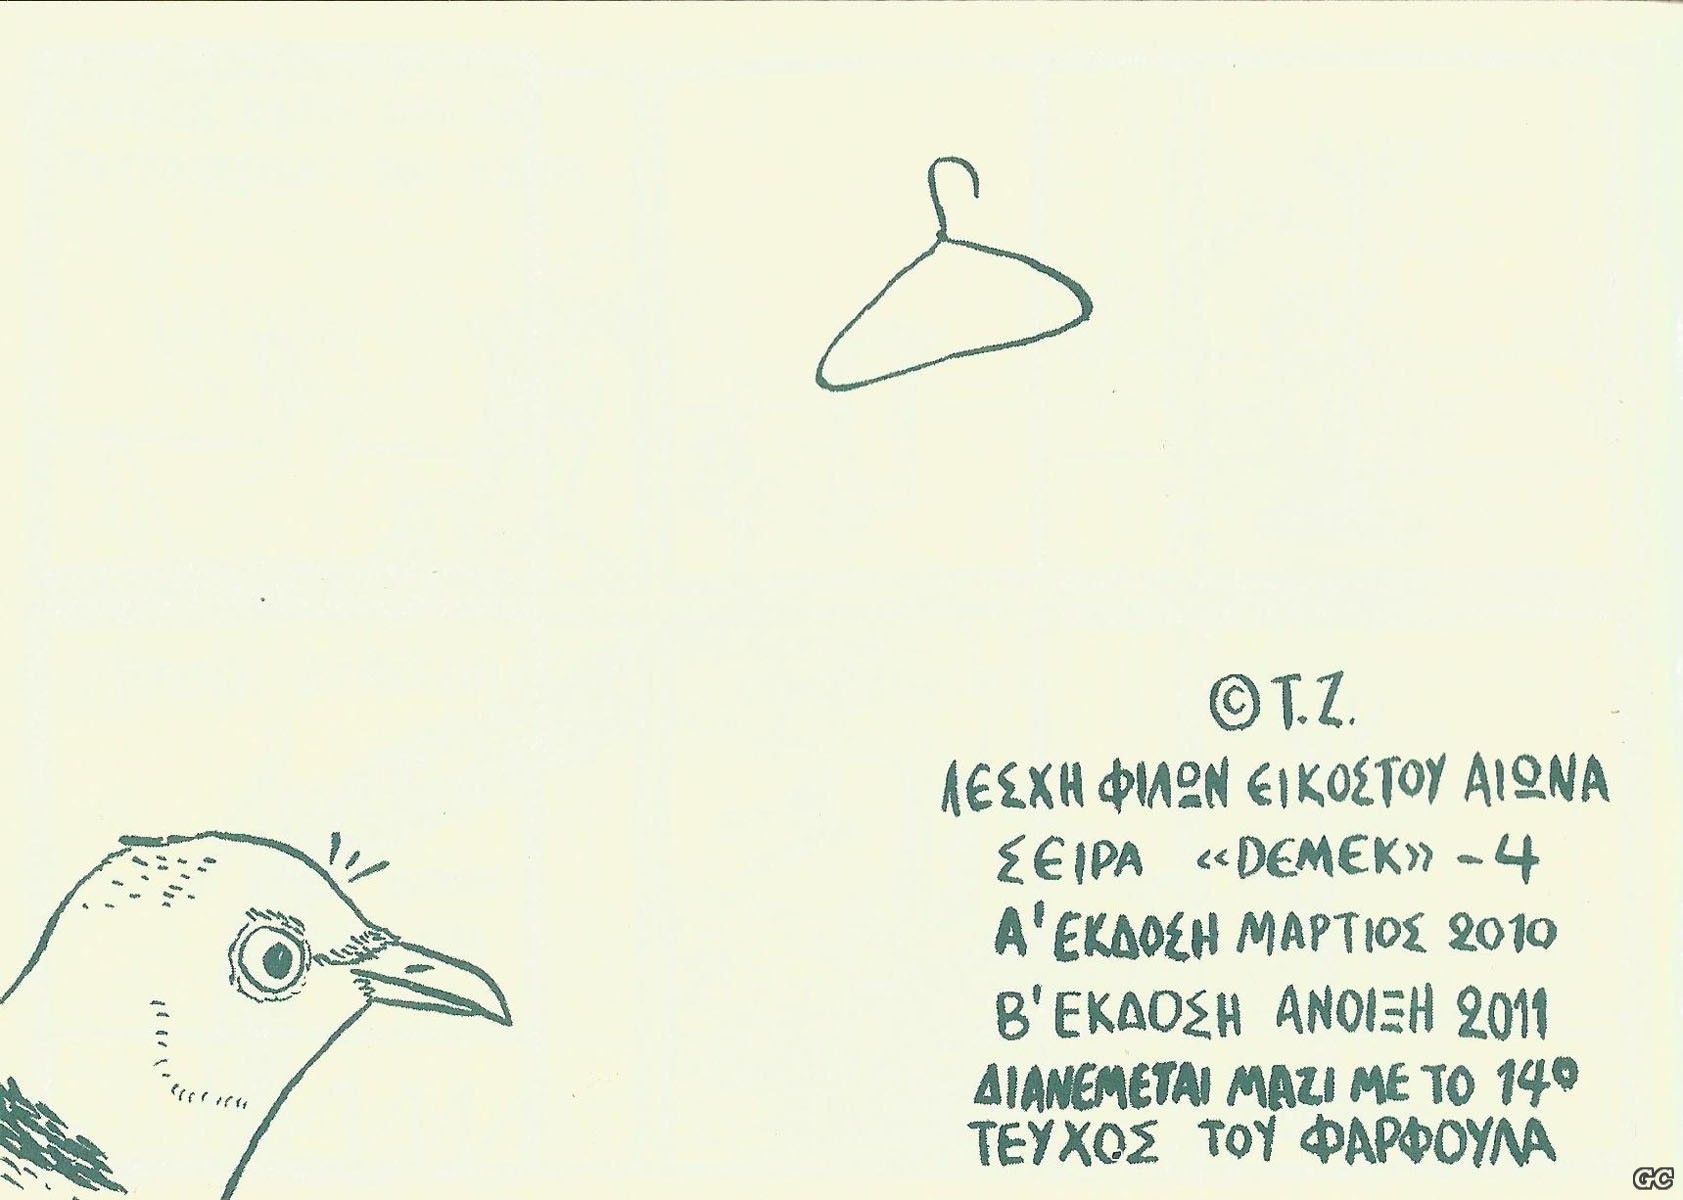 © Τ.Ζ.
ΛΕΣΧΗ ΦΙΛΩΝ ΕΙΚΟΣΤΟΥ ΑΙΩΝΑ
ΣΕΙΡΑ «DEMEK» - 4
Α' ΕΚΔΟΣΗ ΜΑΡΤΙΟΣ 2010
Β' ΕΚΔΟΣΗ ΑΝΟΙΞΗ 2011
ΔΙΑΝΕΜΕΤΑΙ ΜΑΖΙ ΜΕ ΤΟ 14º
ΤΕΥΧΟΣ ΤΟΥ ΦΑΡΦΟΥΛΑ
GC